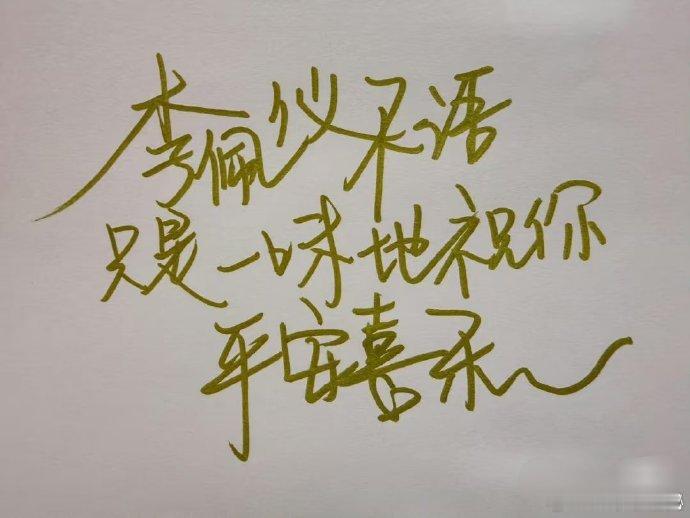 李佩仪不语
只是一味地祝你
平安喜乐～